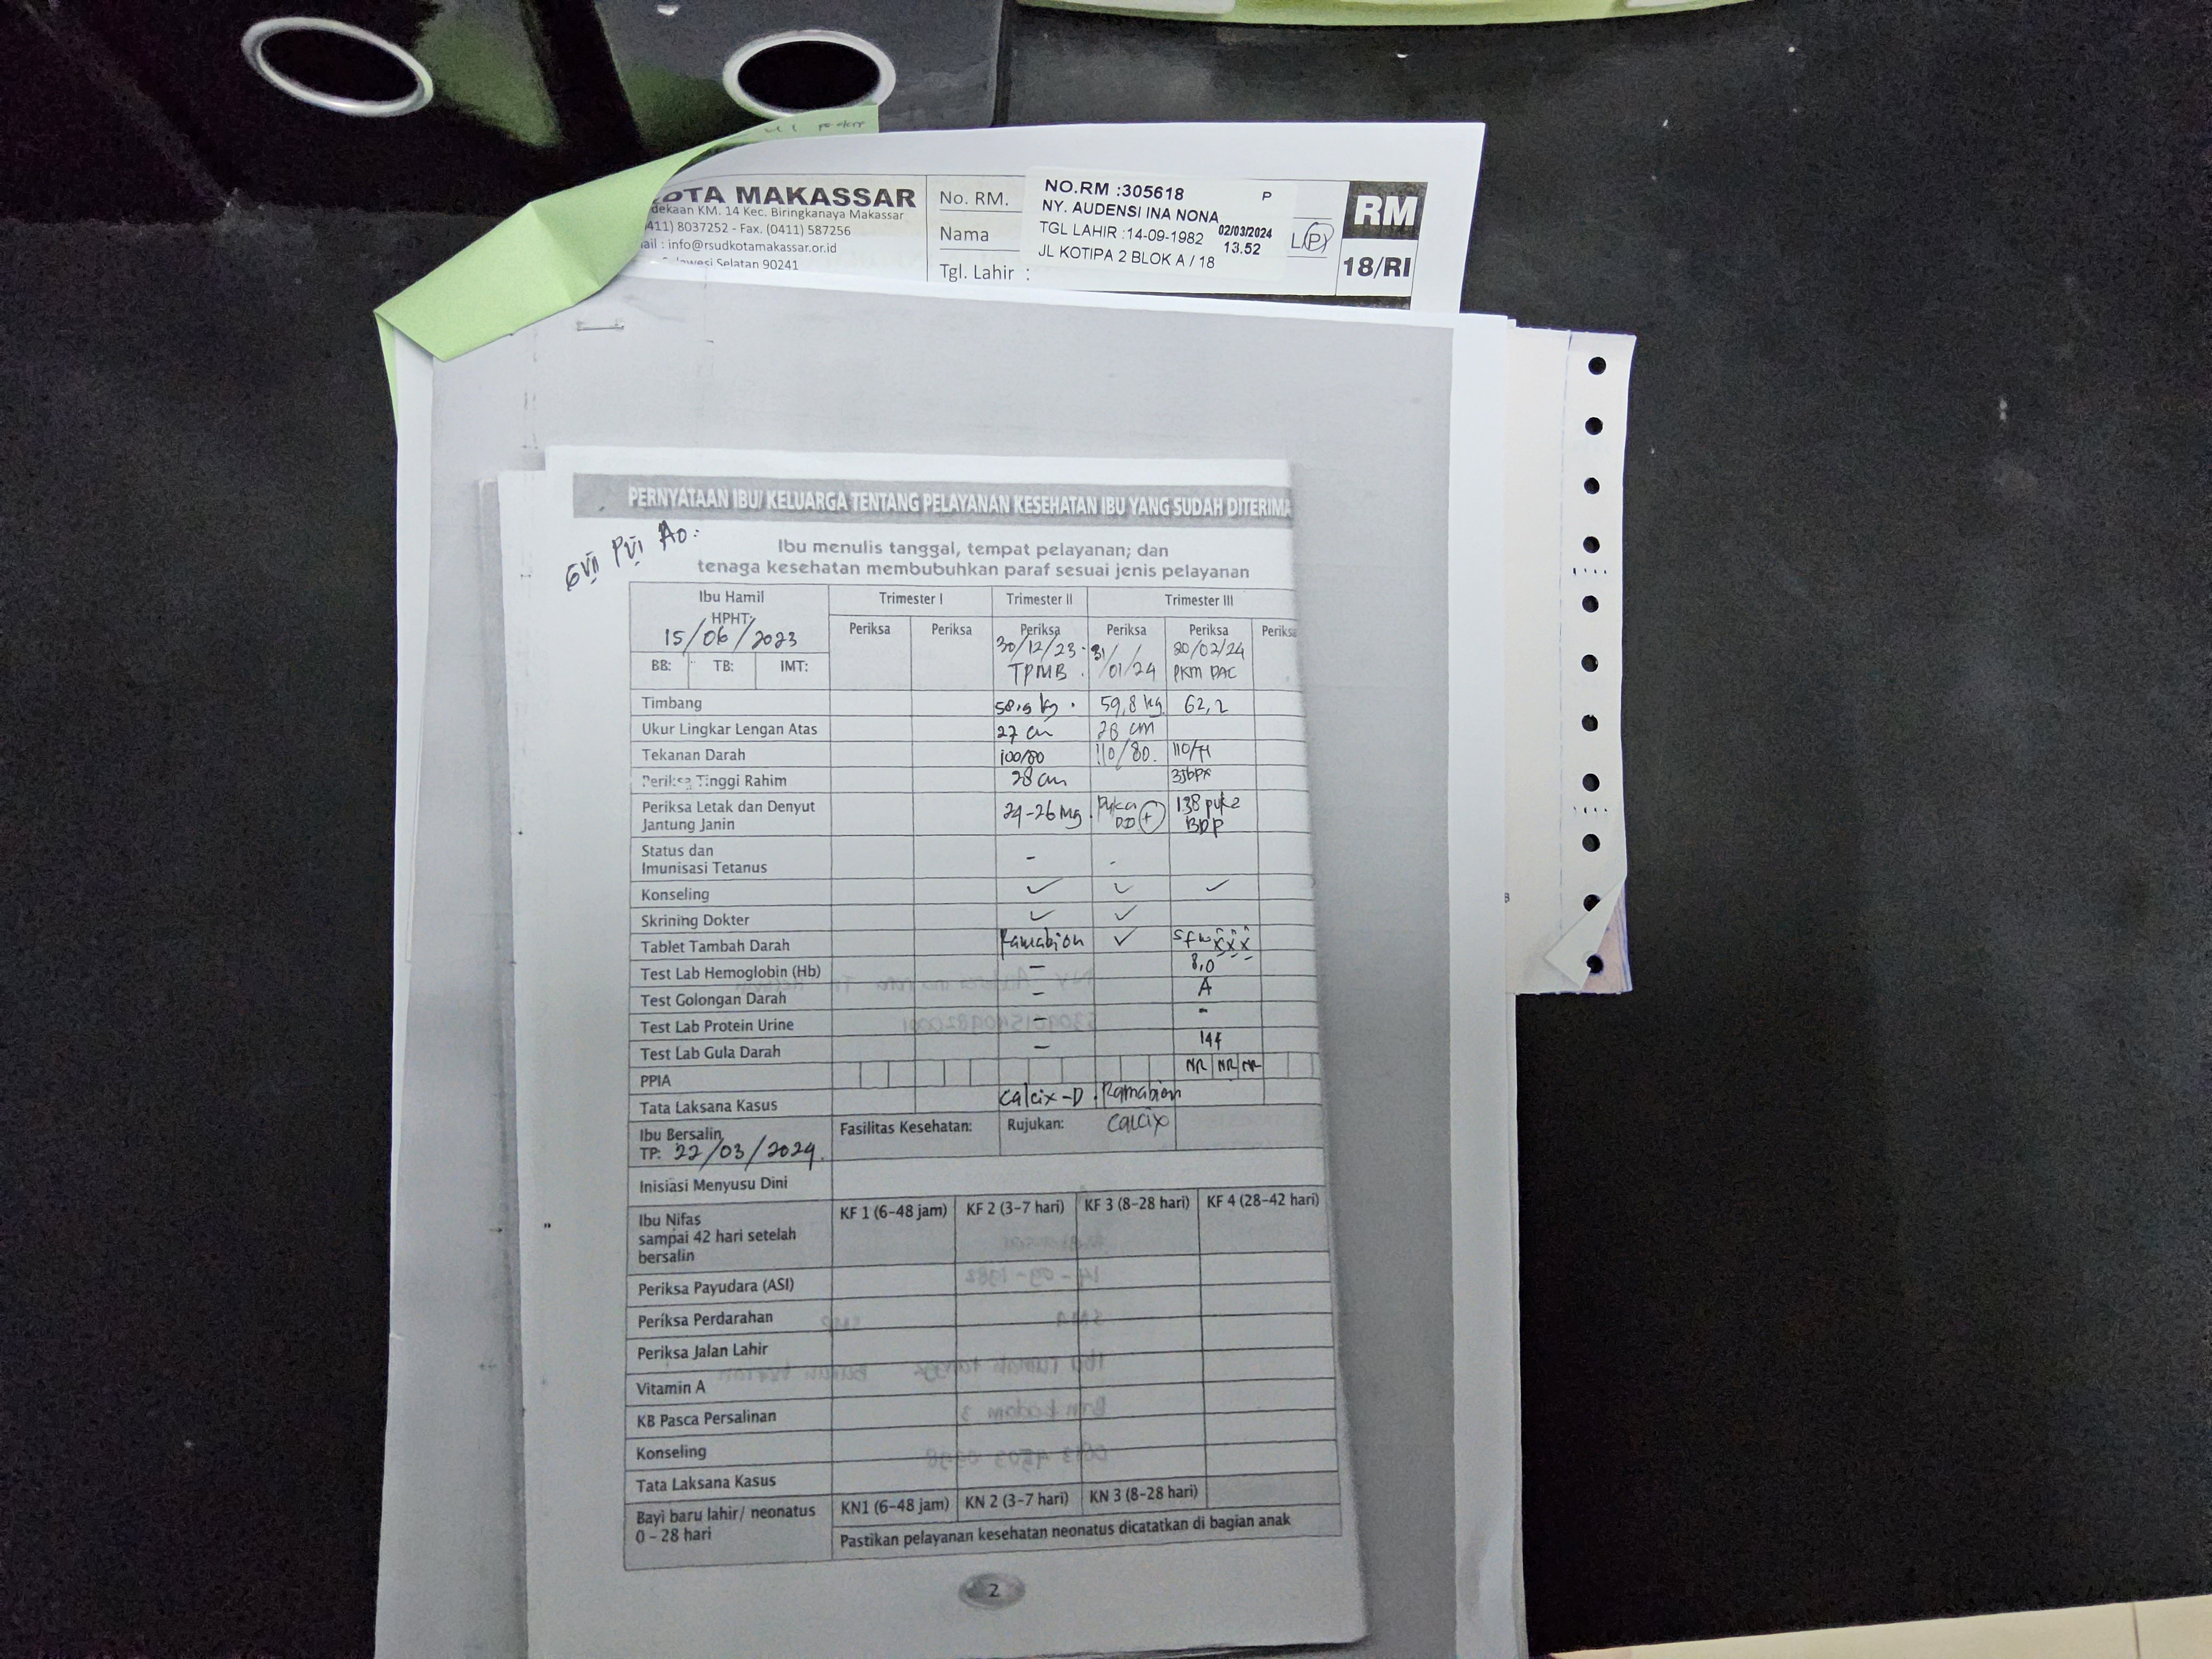 KOTA MAKASSAR
dekaan KM. 14 Kec. Biringkanaya Makassar
411) 8037252 - Fax. (0411) 587256
ail : info@rsudkotamakassar.or.id
Selatan 90241
No. RM.
Nama
Tgl. Lahir :
NO.RM :305618 P
NY. AUDENSI INA NONA
TGL LAHIR :14-09-1982 02/03/2024
13.52
JL KOTIPA 2 BLOK A / 18
L P
RM
18/RI
PERNYATAAN IBU/ KELUARGA TENTANG PELAYANAN KESEHATAN IBU YANG SUDAH DITERIMA
GVII PVI A0:
Ibu menulis tanggal, tempat pelayanan; dan
tenaga kesehatan membubuhkan paraf sesuai jenis pelayanan
Ibu Hamil Trimester I Trimester II Trimester III
HPHT: Periksa Periksa Periksa Periksa Periksa Periksa
15/06/2023 30/12/23 31/01/24 20/02/24
BB: TB: IMT: TPMB PKM PAC
Timbang 58,9 kg 59,8 kg 62,2
Ukur Lingkar Lengan Atas 27 cm 28 cm
Tekanan Darah 100/80 110/80. 110/71
Periksa Tinggi Rahim 28 cm
Periksa Letak dan Denyut 24-26 Mg Puka 138 puka
Jantung Janin + BDP
Status dan
Imunisasi Tetanus - -
Konseling ✓ ✓ ✓
Skrining Dokter ✓ ✓
Tablet Tambah Darah Ramabion ✓ SF XXX
Test Lab Hemoglobin (Hb) - 8,0
Test Golongan Darah - A
Test Lab Protein Urine - -
Test Lab Gula Darah - 144
PPIA NR NR NR
Tata Laksana Kasus Calcix-D Ramabion
Ibu Bersalin Fasilitas Kesehatan: Rujukan: Calcix
TP: 22/03/2024
Inisiasi Menyusu Dini
Ibu Nifas KF 1 (6-48 jam) KF 2 (3-7 hari) KF 3 (8-28 hari) KF 4 (28-42 hari)
sampai 42 hari setelah
bersalin
Periksa Payudara (ASI)
Periksa Perdarahan
Periksa Jalan Lahir
Vitamin A
KB Pasca Persalinan
Konseling
Tata Laksana Kasus
Bayi baru lahir/ neonatus KN1 (6-48 jam) KN 2 (3-7 hari) KN 3 (8-28 hari)
0 - 28 hari Pastikan pelayanan kesehatan neonatus dicatatkan di bagian anak
2